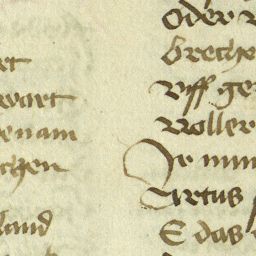 et
wart
enam
chen
land
Oder
breche
Vff ge
Woller
Ir min
Artus
E das